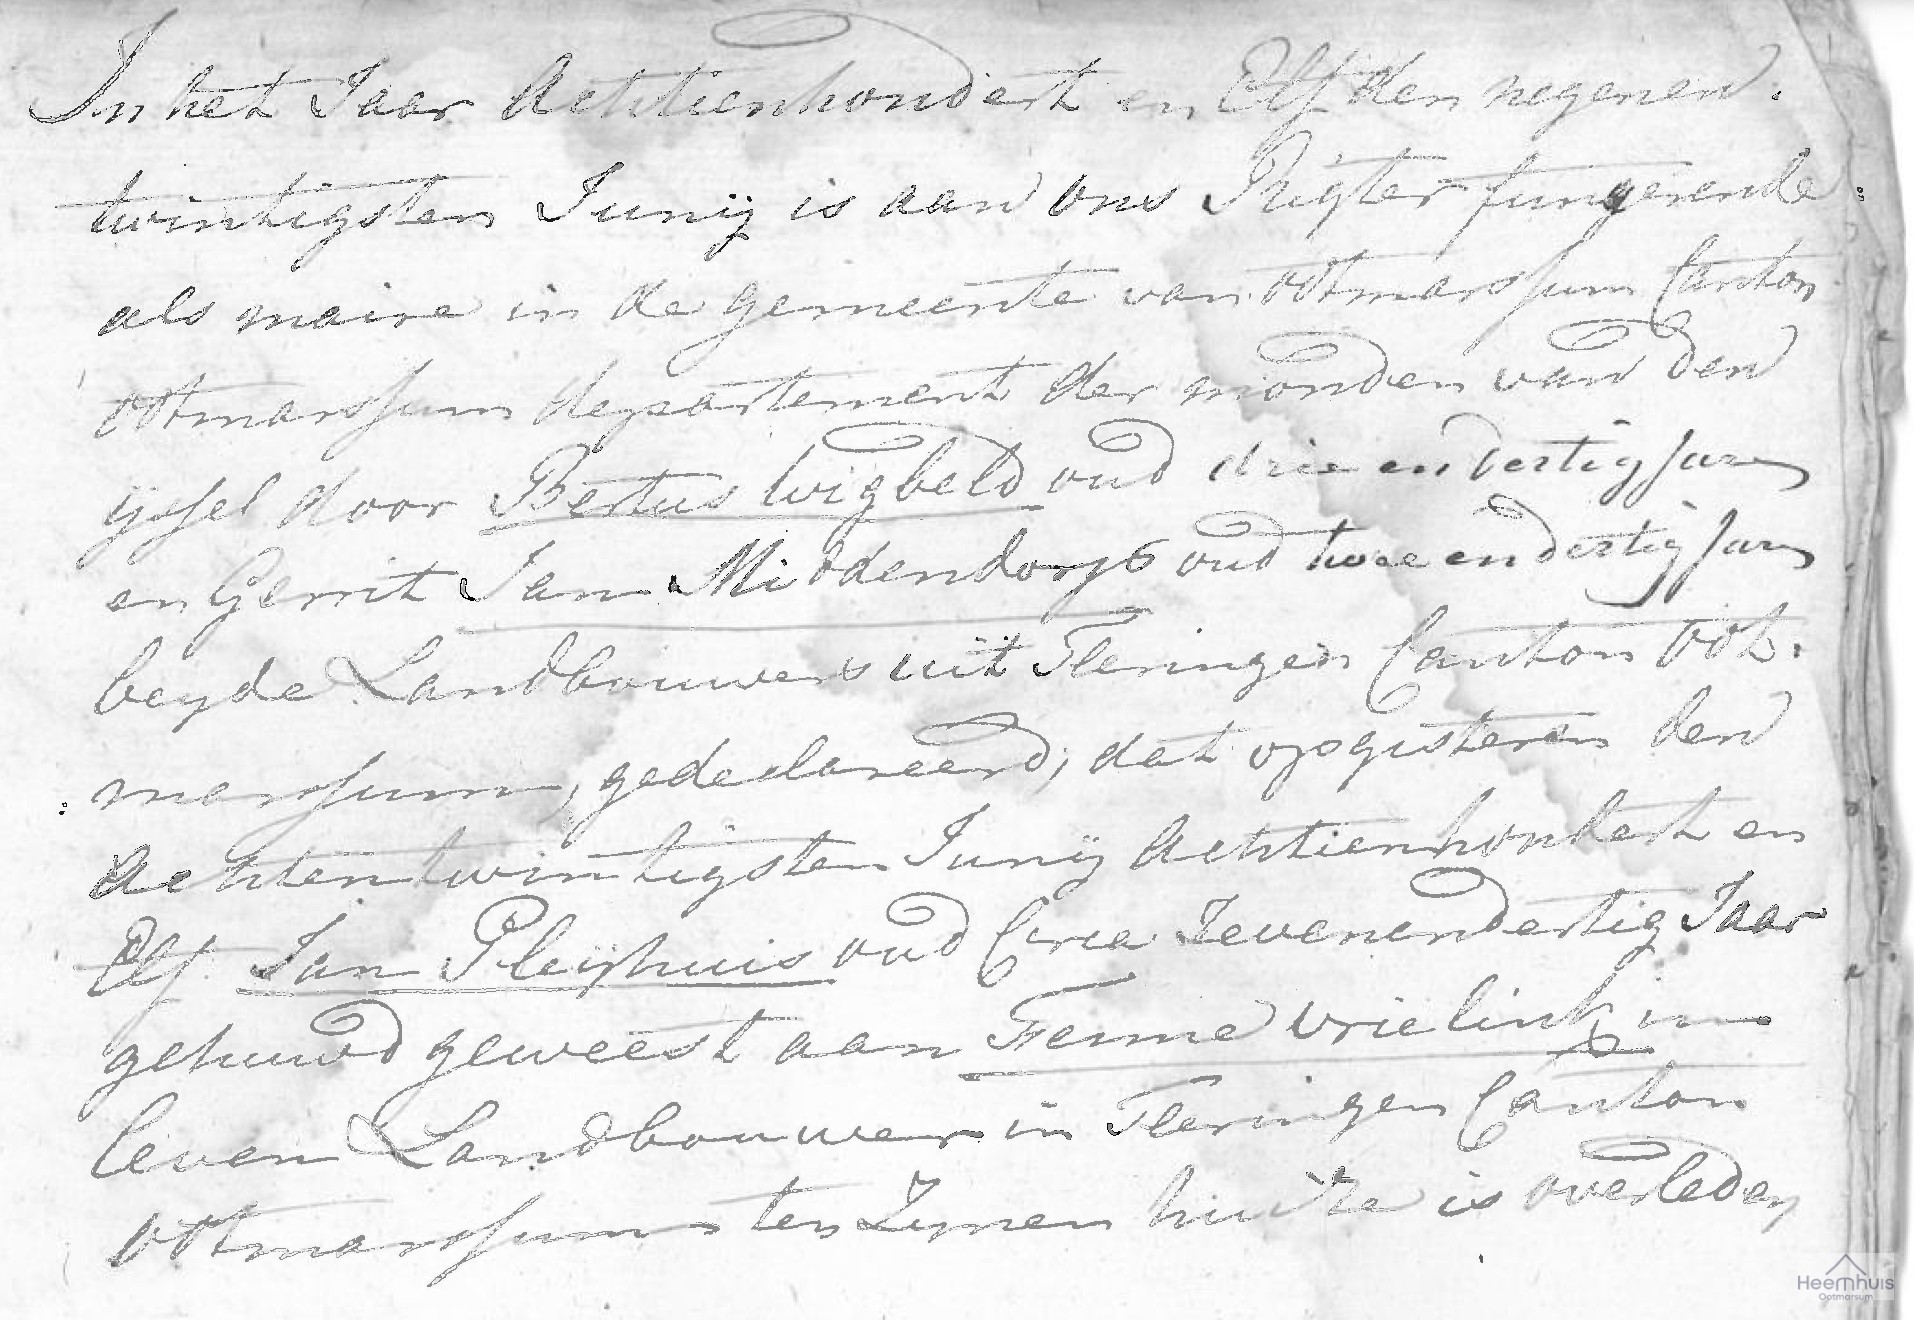 In het Jaar Achtienhondert en Elf den negenen:
twintigsten Junij is aan ons Rigter fungerende
als maire in de gemeente van ottmarssum Canton
ottmarssum departement der monden van den
ijssel door Bertus Wigbeld oud drie en dertig Jaren
en Gerrit Jan Middendorp oud twee en dertig Jaren
beyde Landbouwers uit Fleringen Canton Oot:
: marssum, gedeclareerd, dat opgisteren den
Achtentwintigsten Junij Achtienhondert en
Elf Jan Pleijhuis oud Circa Zevenendertig Jaar
gehuwd geweest aan Fenne Vrielink in
leven Landbouwer in Fleringen Canton
ottmarssum ten Zynen huize is overleden
Heemhuis
Ootmarsum